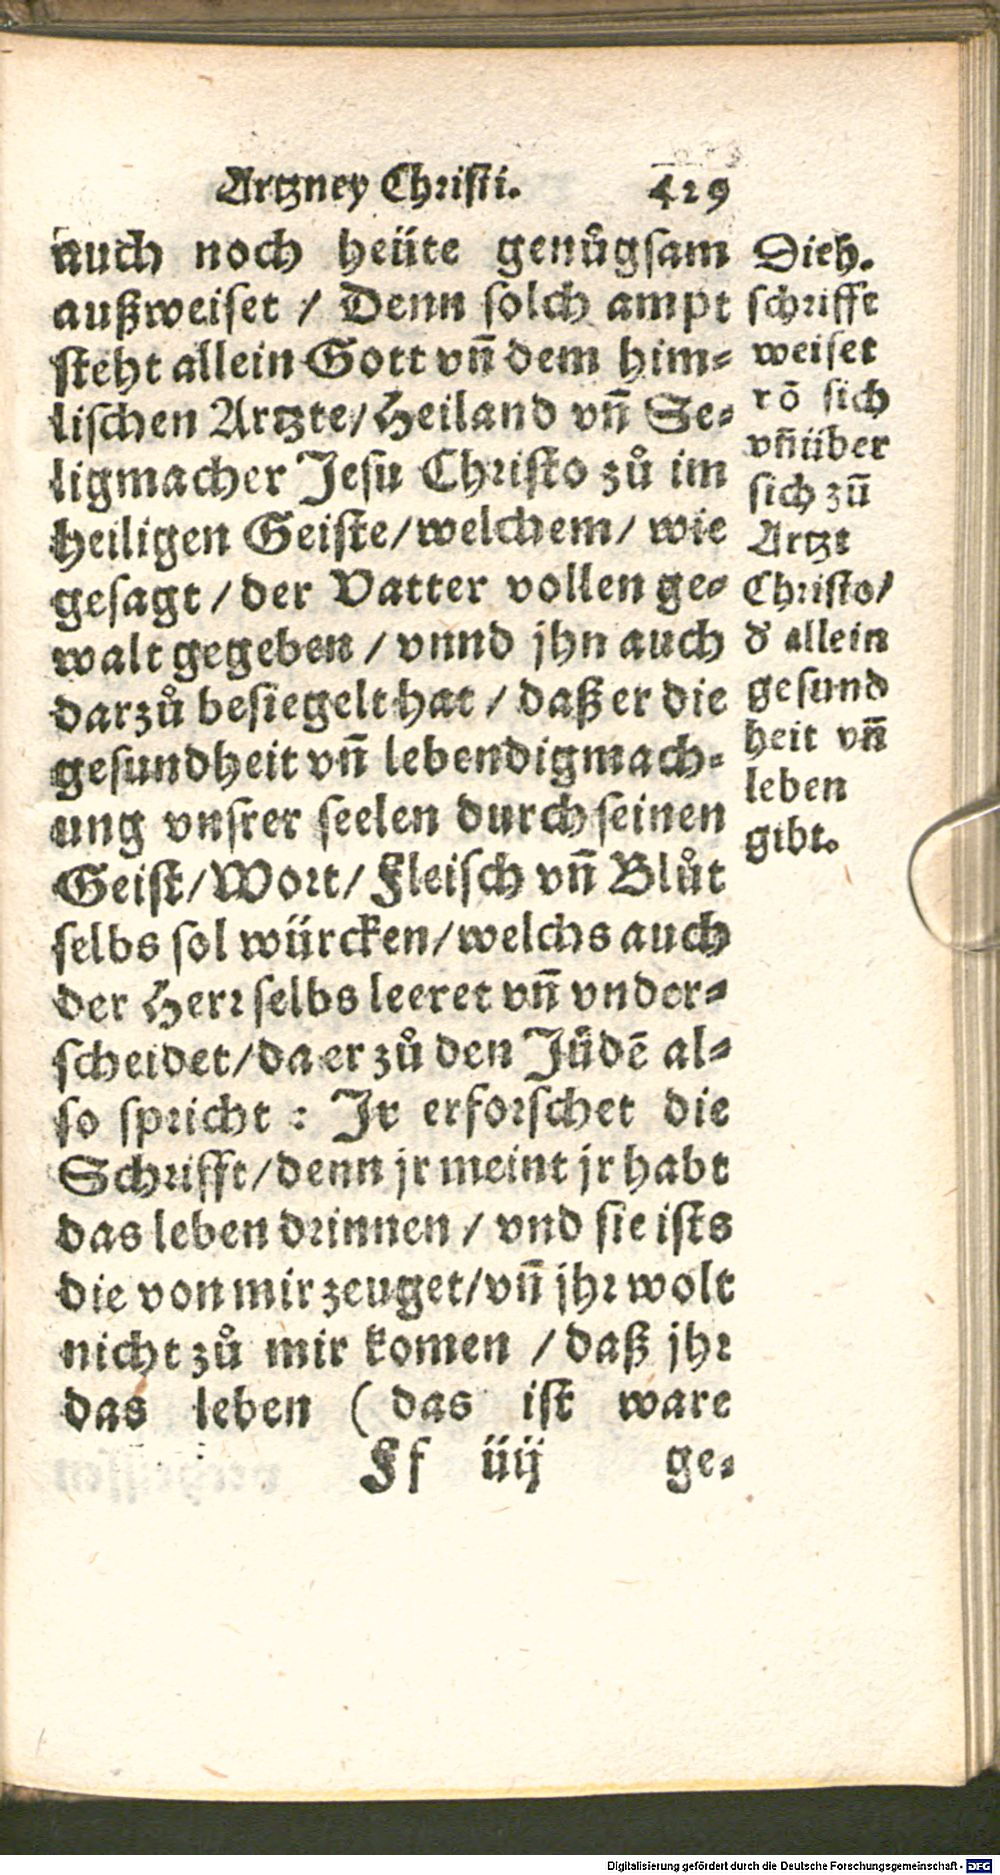 Artzney Christi. 429
auch noch heüte genůgsam
außweiset / Denn solch ampt
steht allein Gott vñ dem him⸗
lischen Artzte/Heiland vñ Se⸗
ligmacher Jesu Christo zů im
heiligen Geiste/welchem/ wie
gesagt / der Vatter vollen ge⸗
walt gegeben / vnnd jhn auch
darzů besiegelt hat / daß er die
gesundheit vñ lebendigmach⸗
ung vnsrer seelen durch seinen
Geist/Wort/Fleisch vñ Blůt
selbs sol würcken/welchs auch
der Herr selbs leeret vñ vnder⸗
scheidet/da er zů den Jüdẽ al⸗
so spricht : Jr erforschet die
Schrifft/denn jr meint jr habt
das leben drinnen / vnd sie ists
die von mir zeuget/vñ jhr wolt
nicht zů mir komen / daß jhr
das leben ( das ist ware
Ff iiij ge⸗
Die h.
schrifft
weiset
võ sich
vñ über
sich zũ
Artzt
Christo/
d' allein
gesund
heit vñ
leben
gibt.
Digitalisierung gefördert durch die Deutsche Forschungsgemeinschaft - DFG